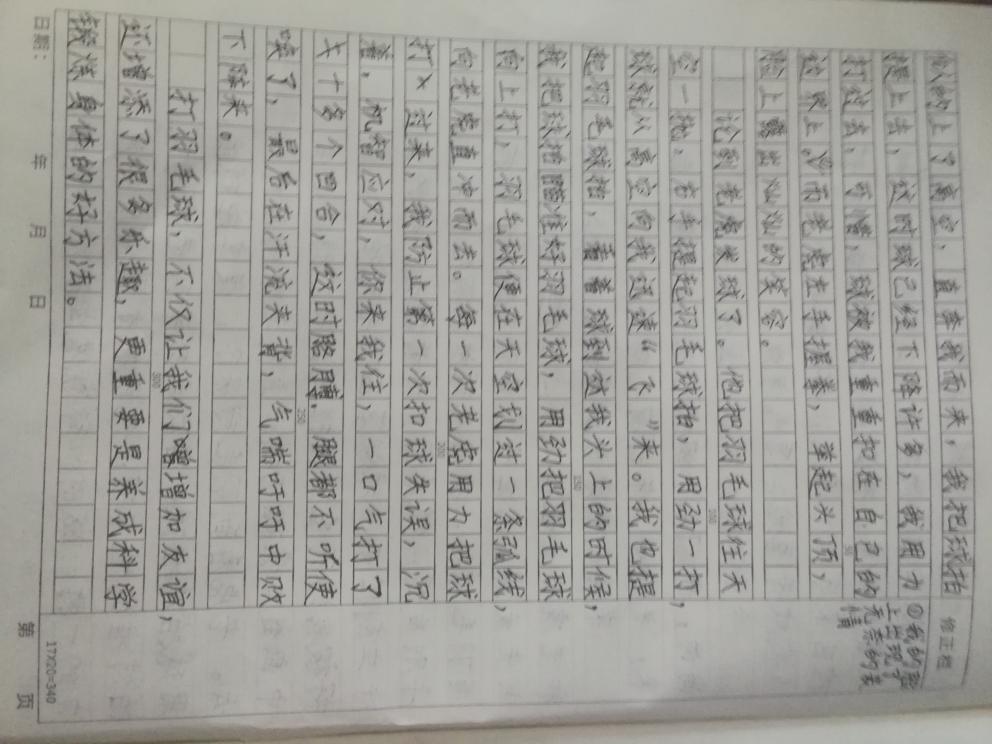 修正栏
飞上了高空，直奔我而来，我把球拍
提上去，这时球已经下降许多，我用力
打过去，可惜，球被我重重扣在自己的
这界上。①而老虎左手握拳，举起头顶，
脸上露出灿灿的笑容。
①我的脸上出现了无奈的表情
论到老虎发球了。他把羽毛球往天
空一抛，右手提起羽毛球拍，用劲一打，
球就从高空向我迅速“飞”来。我也提
起羽毛球拍，看着球到达我头上的时候，
我把球拍瞄准好羽毛球，用劲把羽毛球
向上打，羽毛球便在天空划过一条弧线，
向老虎直冲而去。每一次老虎用力把球
打过来，我防止第一次扣球失误，沉
着，机智应对，你来我往，一口气打了
七十多个回合，这时胳膊，腿都不听使
唤了，最后在汗流夹背，气喘吁吁中败
下阵来。
打羽毛球，不仅让我们增加友谊，
还增添了很多乐趣，更重要是养成科学
锻炼身体的好方法。
50
100
150
200
250
300
日期： 年 月 日
17X20=340
第 页